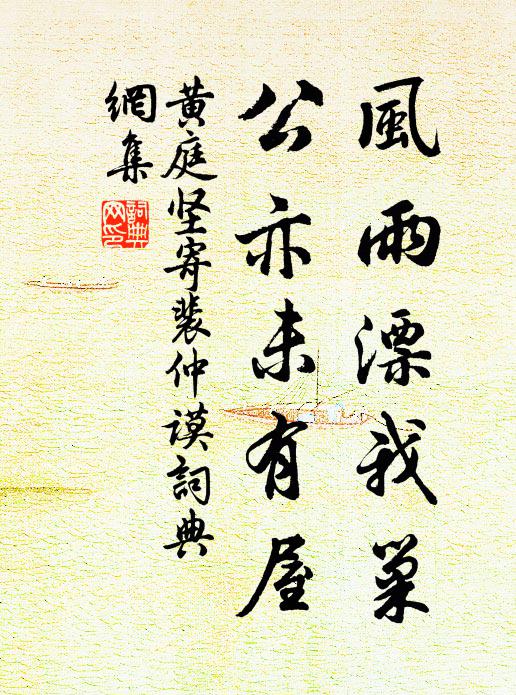 風雨漂我巢
公亦未有屋
黄庭坚寄裴仲謨詞典
網集
詞典
网印